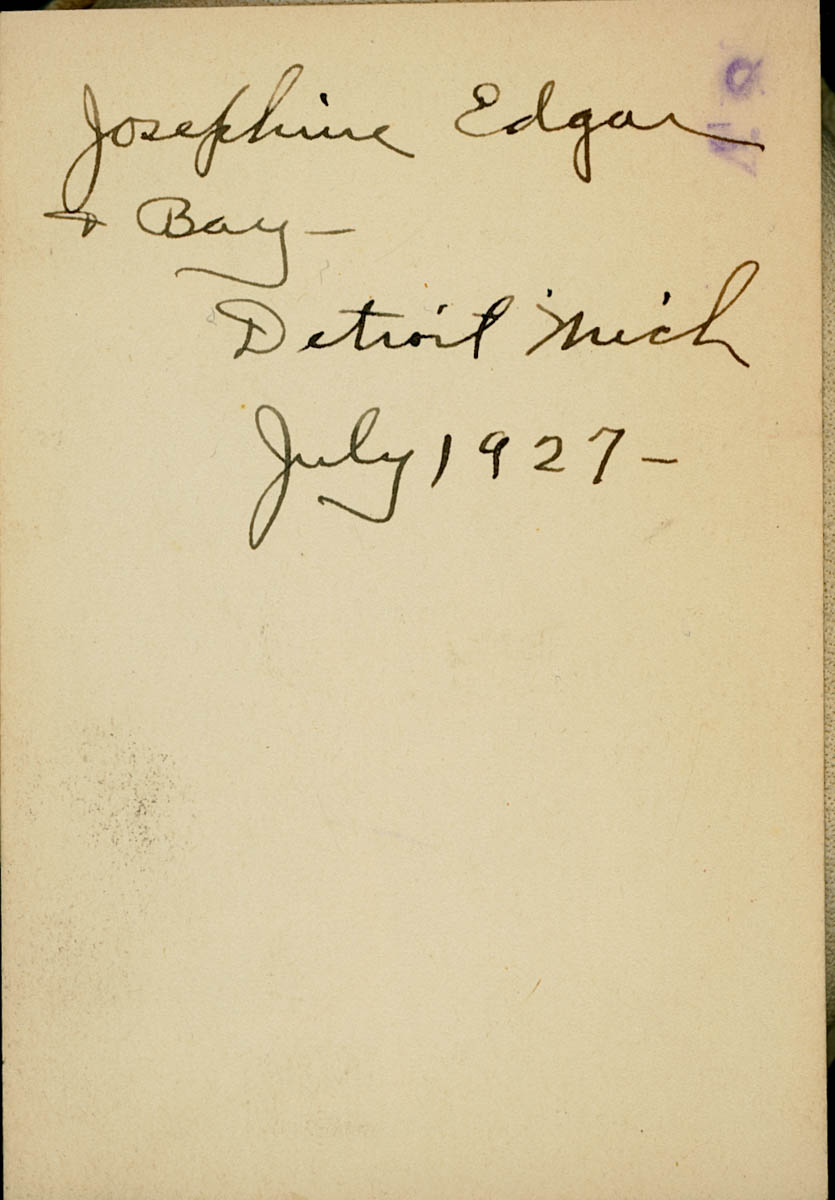 Josephine Edgar
& Bay —
Detroit Mich
July 1927 —